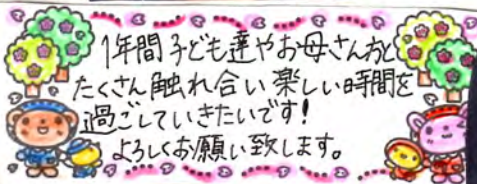 1年間子ども達やお母さん方と
たくさん触れ合い楽しい時間を
過ごしていきたいです!
よろしくお願い致します。